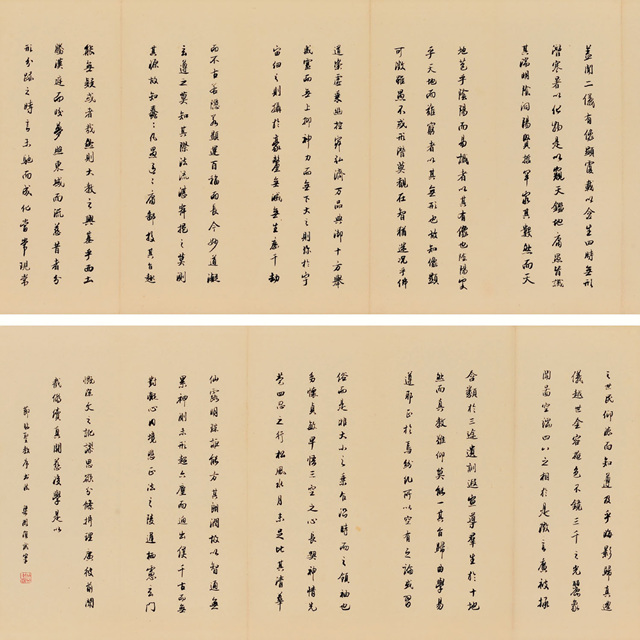 蓋聞二儀有像顯覆載以含生四時無形
潛寒暑以化物是以窺天鑑地庸愚皆識
其端明陰洞陽賢哲罕窮其數然而天
地苞乎陰陽而易識者以其有像也陰陽處
乎天地而難窮者以其無形也故知像顯
可徵雖愚不惑形潛莫覩在智猶迷況乎佛
道崇虛乘幽控寂弘濟萬品典御十方舉
威靈而無上抑神力而無下大之則彌於宇
宙細之則攝於毫釐無滅無生歷千劫
而不古若隱若顯運百福而長今妙道凝
玄遵之莫知其際法流湛寂挹之莫測
其源故知蠢蠢凡愚區區庸鄙投其旨趣
能無疑惑者哉然則大教之興基乎西土
騰漢庭而皎夢照東域而流慈昔者分
形分跡之時言未馳而成化當常現常
之世民仰德而知遵及乎晦影歸真遷
儀越世金容掩色不鏡三千之光麗象
開圖空端四八之相於是微言廣被拯
含類於三途遺訓遐宣導群生於十地
然而真教難仰莫能一其旨歸曲學易
遵邪正於焉紛糺所以空有之論或習
俗而是非大小之乘乍沿時而之領袖也
幼懷貞敏早悟三空之心長契神情先
苞四忍之行松風水月未足比其清華
仙露明珠詎能方其朗潤故以智通無
累神測未形超六塵而迥出隻千古而無
對凝心內境悲正法之陵遲栖慮玄門
慨深文之訛謬思欲分條析理廣彼前聞
截偽續真開茲後學是以
節臨聖教序